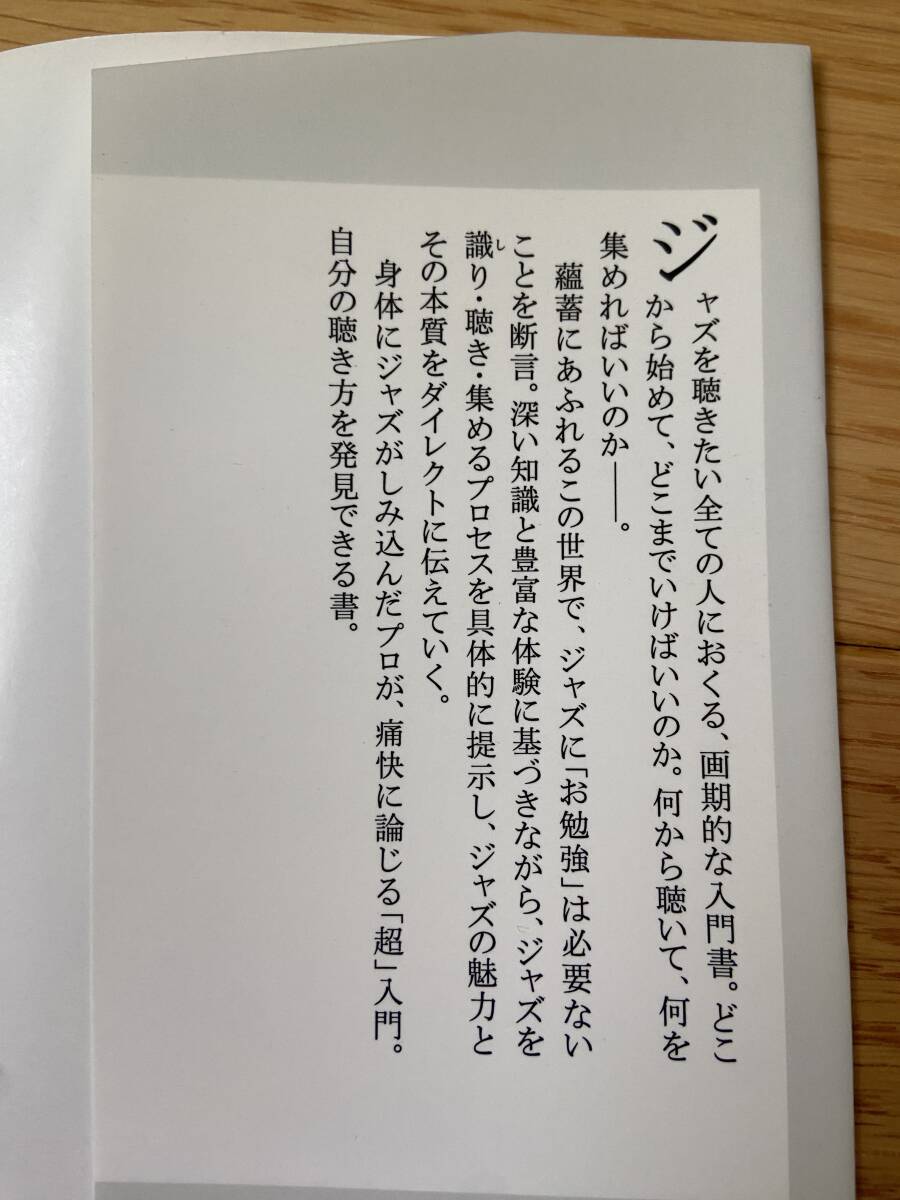 ジャズを聴きたい全ての人におくる、画期的な入門書。どこ
から始めて、どこまでいけばいいのか。何から聴いて、何を
集めればいいのか――。
蘊蓄にあふれるこの世界で、ジャズに「お勉強」は必要ない
ことを断言。深い知識と豊富な体験に基づきながら、ジャズを
識り・聴き・集めるプロセスを具体的に提示し、ジャズの魅力と
し
その本質をダイレクトに伝えていく。
身体にジャズがしみ込んだプロが、痛快に論じる「超」入門。
自分の聴き方を発見できる書。